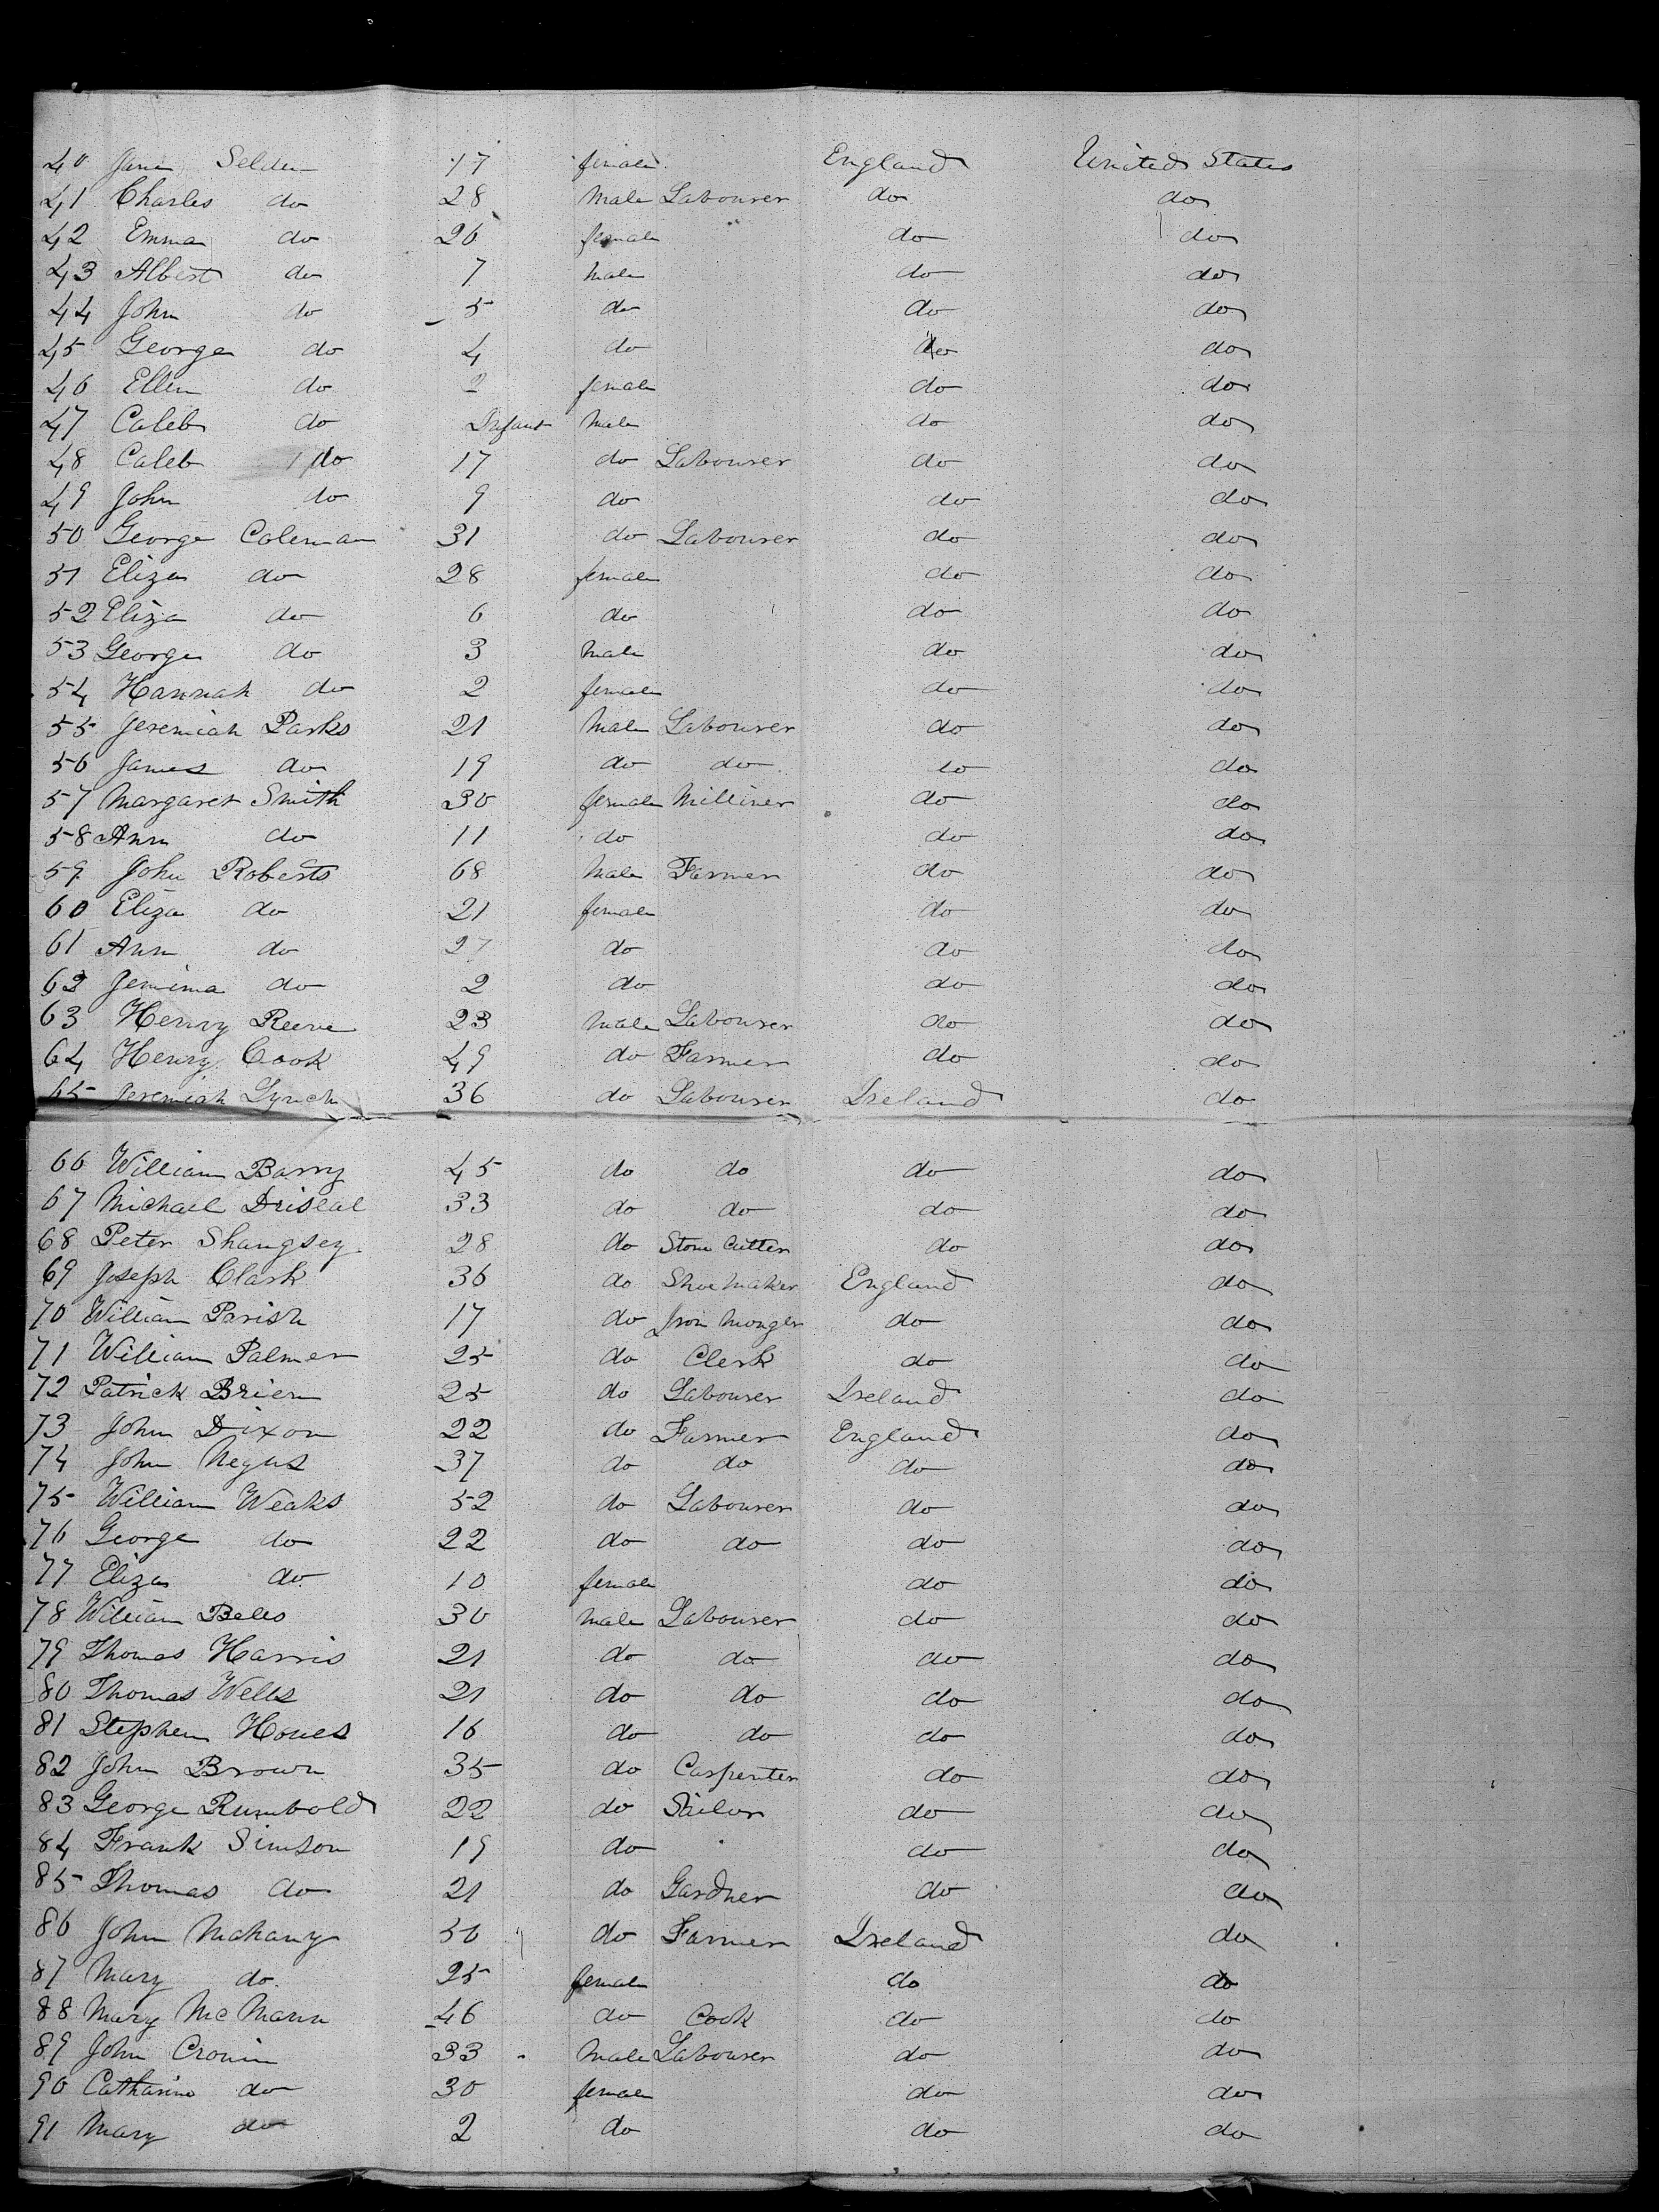 40 Jane Selden 17 female England United States
41 Charles do 28 Male Labourer do do
42 Emma do 26 female do do
43 Albert do 7 Male do do
44 John do 5 do do do
45 George do 4 do do do
46 Ellen do 2 female do do
47 Caleb do Infant Male do do
48 Caleb do 17 do Labourer do do
49 John do 9 do do do
50 George Coleman 31 do Labourer do do
51 Eliza do 28 female do do
52 Eliza do 6 do do do
53 George do 3 Male do do
54 Hannah do 2 female do do
55 Jeremiah Parks 21 Male Labourer do do
56 James do 19 do do do do
57 Margaret Smith 30 female Milliner do do
58 Ann do 11 do do do
59 John Roberts 68 Male Farmer do do
60 Eliza do 21 female do do
61 Ann do 27 do do do
62 Jemima do 2 do do do
63 Henry Reeve 23 Male Labourer do do
64 Henry Cook 49 do Farmer do do
65 Jeremiah Lynch 36 do Labourer Ireland do
66 William Barry 45 do do do do
67 Michael Driscal 33 do do do do
68 Peter 28 do Stone Cutter do do
69 Joseph Clark 36 do Shoe Maker England do
70 William Parish 17 do Iron Monger do do
71 William Palmer 25 do Clerk do do
72 Patrick Brien 25 do Labourer Ireland do
73 John Dixon 22 do Farmer England do
74 John Negus 37 do do do do
75 William Weaks 52 do Labourer do do
76 George do 22 do do do do
77 Eliza do 10 female do do
78 William Bells 30 Male Labourer do do
79 Thomas Harris 21 do do do do
80 Thomas Wells 21 do do do do
81 Stephen Howes 16 do do do do
82 John Brown 35 do Carpenter do do
83 George Rumbold 22 do Sailor do do
84 Frank Simson 19 do do do
85 Thomas do 21 do Gardner do do
86 John Mahany 50 do Farmer Ireland do
87 Mary do 25 female do do
88 Mary Mc Mann 46 do Cook do do
89 John Cronin 33 Male Labourer do do
90 Catharine do 30 female do do
91 Mary do 2 do do do